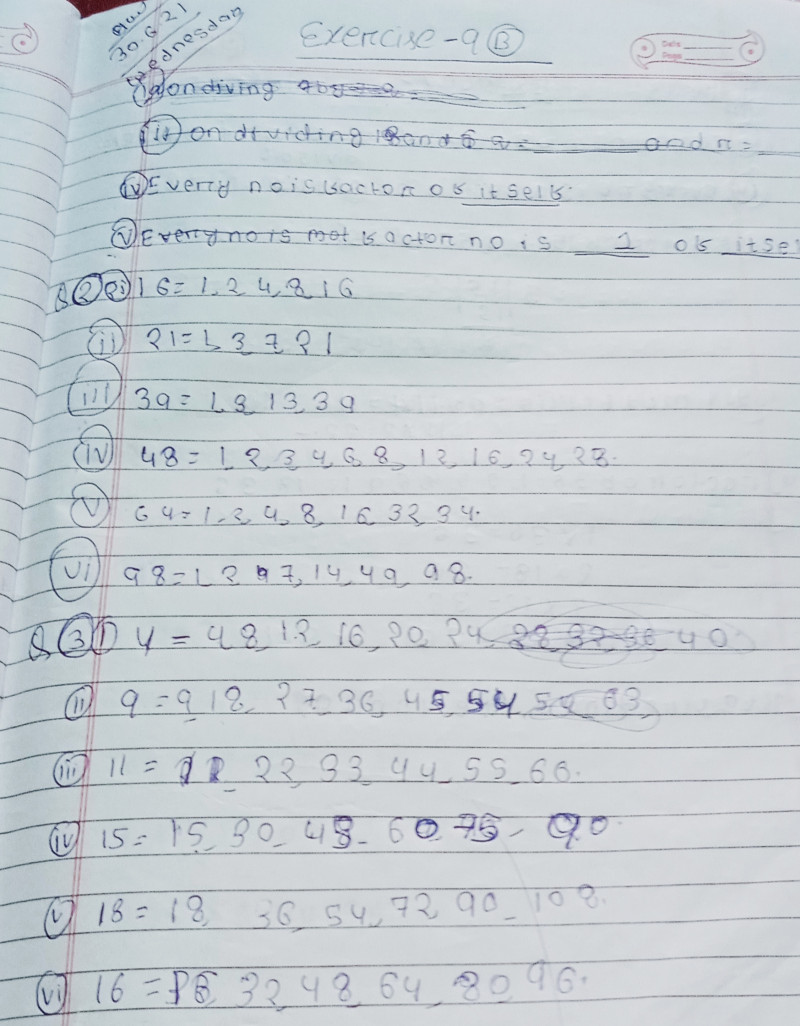 30.6.21
Wednesday
Exercise-9 B
Date
Page
on diving
ii on dividing 18 and 6 and r =
iv Every no is factor of itself.
v Every no is not factor no is 1 of itse
Q 2 i 16 = 1, 2 4, 8, 16
ii 21 = 1, 3, 7, 21
iii 39 = 1, 3, 13, 39
iv 48 = 1, 2, 3, 4, 6, 8, 12, 16, 24, 28.
v 64 = 1, 2, 4, 8, 16, 32, 34.
vi 98 = 1, 2 7, 14, 49, 98.
Q 3 i 4 = 4, 8, 12, 16, 20, 24, 28, 32, 36, 40
ii 9 = 9, 18, 27, 36, 45, 54, 54, 63,
iii 11 = 11, 22, 33, 44, 55, 66.
iv 15 = 15, 30, 45, 60, 75, 90.
v 18 = 18, 36, 54, 72, 90, 108.
vi 16 = 16, 32, 48, 64, 80, 96.